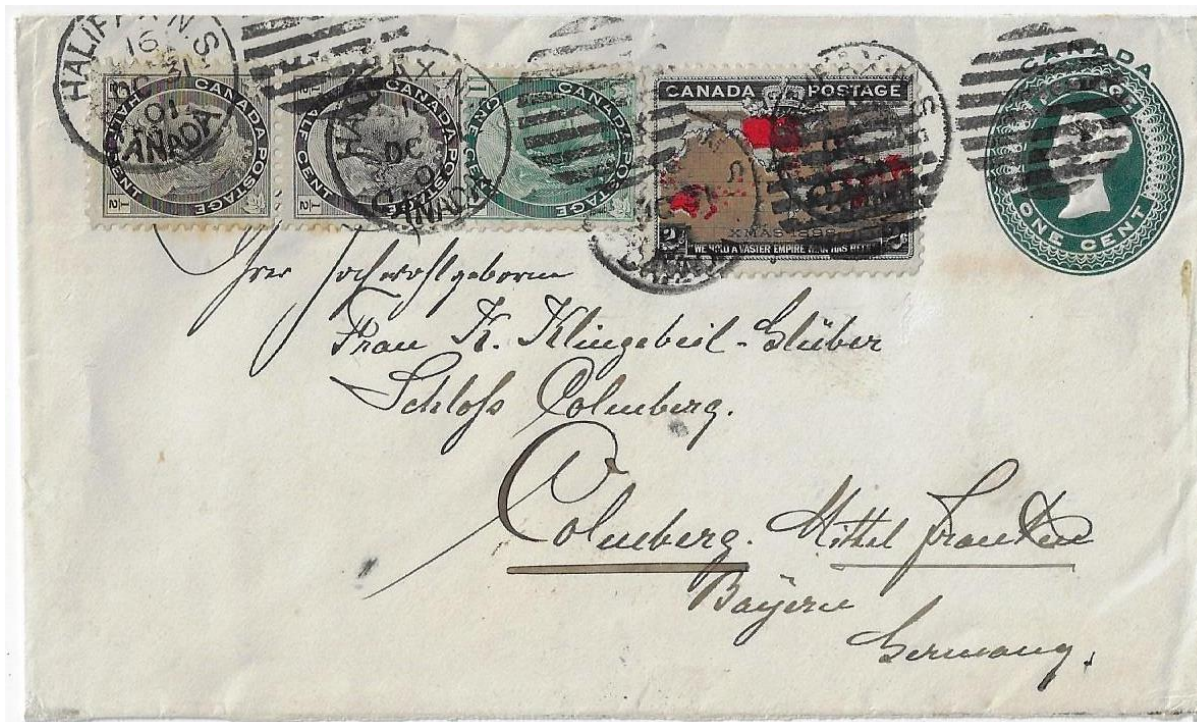 HALIFAX N.S.
16
DC 31
01
CANADA
CANADA POSTAGE
HALF CENT
½ ½
CANADA POSTAGE
HALF CENT
½ ½
CANADA POSTAGE
ONE CENT
1
CANADA POSTAGE
XMAS 1898
2c
WE HOLD A VASTER EMPIRE THAN HAS BEEN
CANADA
POSTAGE
ONE CENT
Ihrer Hochwohlgeboren
Frau K. Klingebeil-Glüber
Schloss Colmberg.
Colmberg. Mittel Franken
Bayern
Germany.